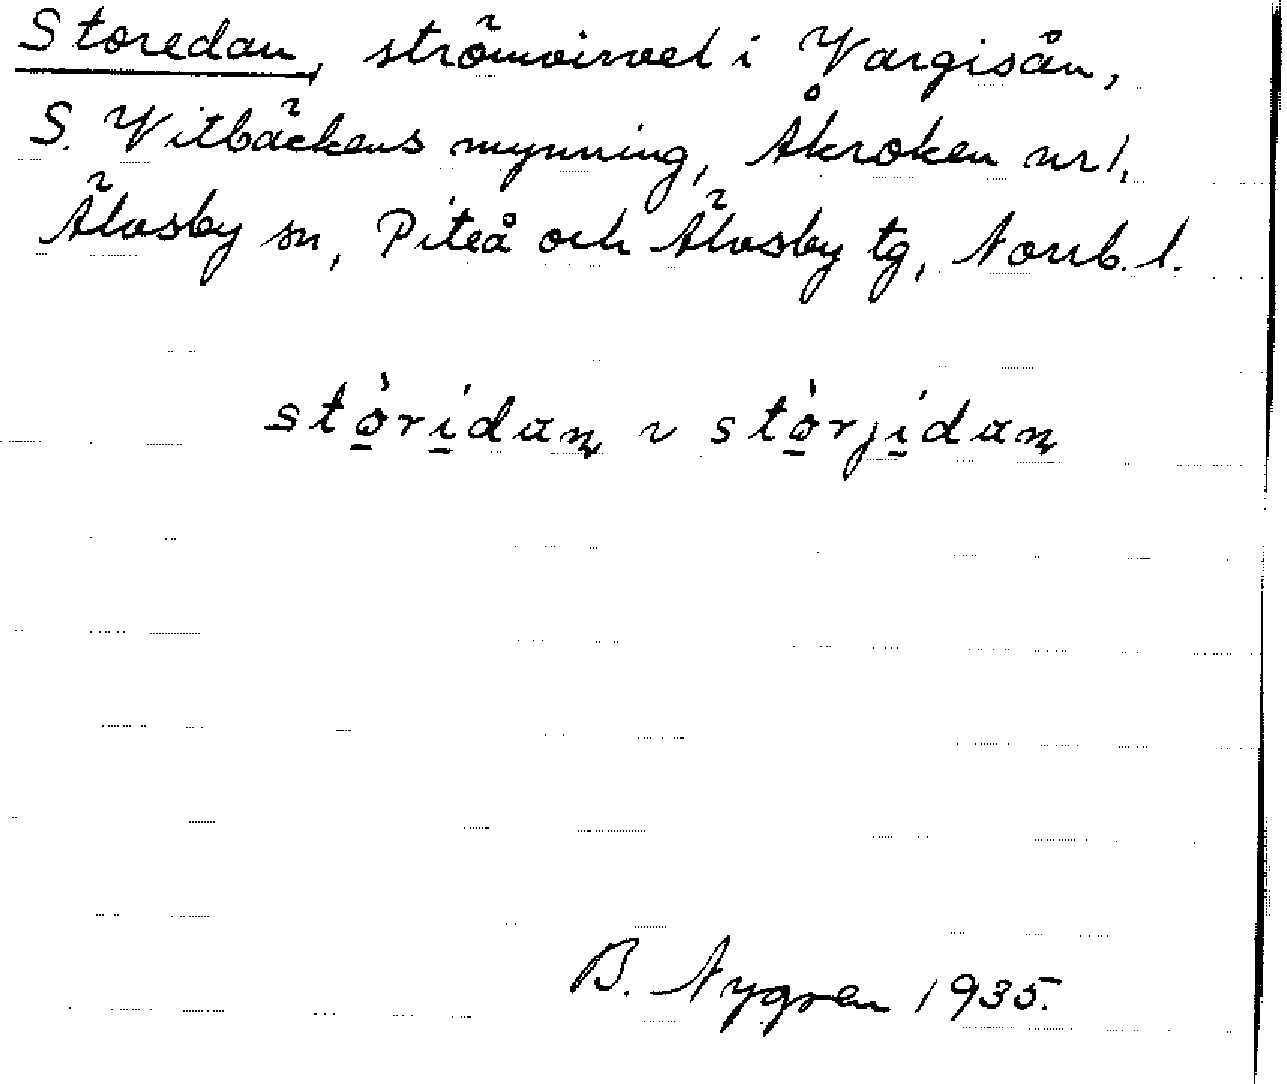 Storedan, strömvirvel i Vargisån,
S. Vitbäckens mynning, Åkroken nr 1,
Älvsby sn, Piteå och Älvsby tg, Norrb. l.
stò̱rí̱dan ~ stò̱rjí̱dan
B. Nygren 1935.